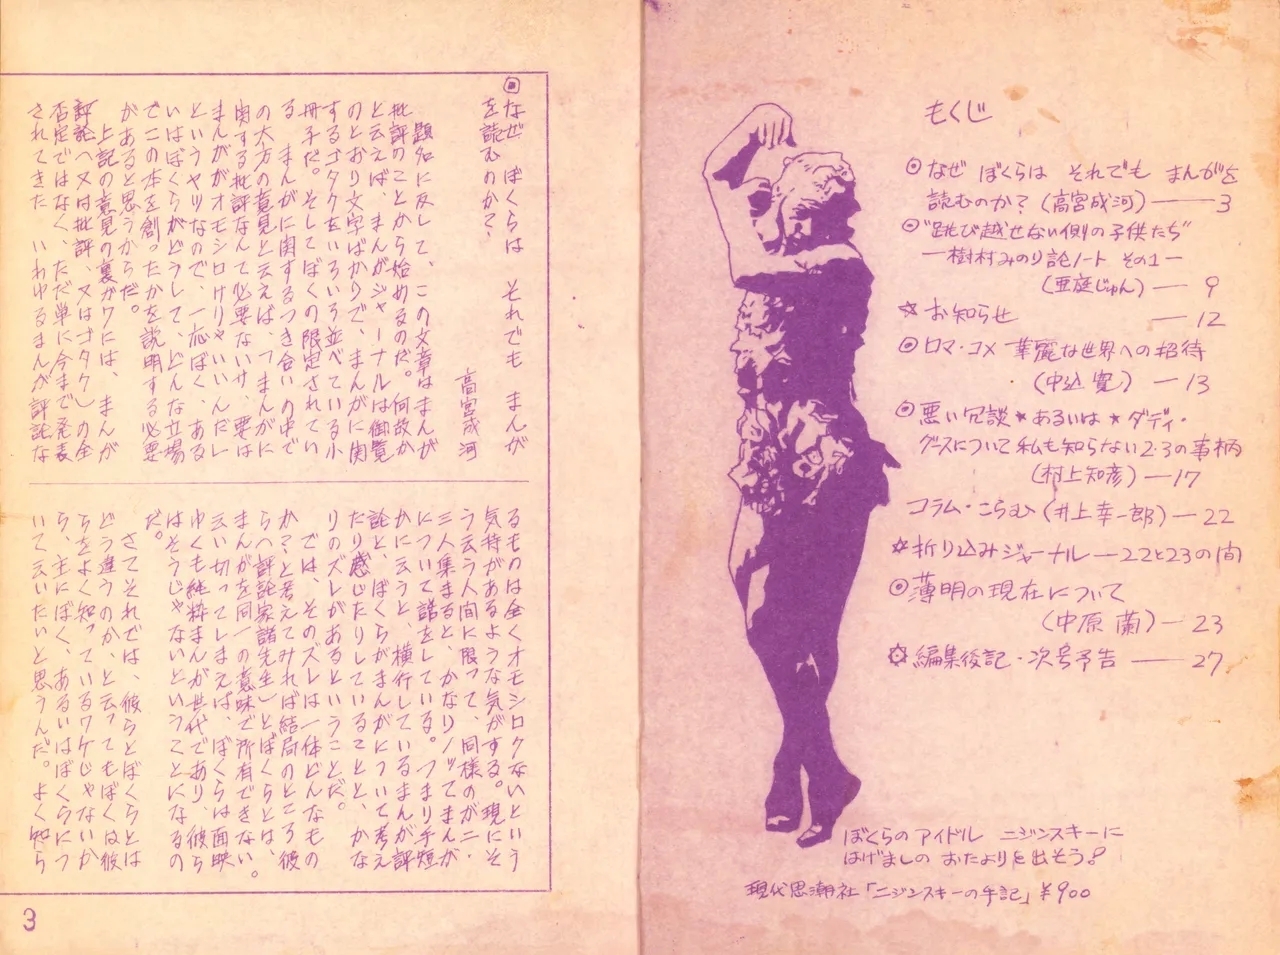 もくじ
◎なぜ ぼくらは それでも まんがを
読むのか?(高宮成河)―3
◎"跳び越せない側の子供たち"
―樹村みのり論ノート その1―
(亜庭じゅん)― 9
☆お知らせ ―12
◎ロマ・コメ 華麗な世界への招待
(中込寛)―13
◎悪い冗談★あるいは★ダディ・
グースについて私も知らない2・3の事柄
(村上知彦)―17
コラム・こらむ(井上幸一郎)―22
☆折り込みジャーナル―22と23の間
◎薄明の現在について
(中原蘭)―23
✡編集後記・次号予告 ―27
ぼくらのアイドル ニジンスキーに
はげましの おたよりを出そう!
現代思潮社「ニジンスキーの手記」¥900
◎なぜ ぼくらは それでも まんが
を読むのか?
高宮成河
題名に反して、この文章はまんが
批評のことから始めるのだ。何故か
と云えば、まんがジャーナルは御覧
のとおり文字ばかりで、まんがに関
するゴタクをいろいろ並べている小
冊子だ。そしてぼくの限定されてい
る まんがに関するつき合いの中で
の大方の意見と云えば、「まんがに
関する批評なんて必要ないサ、要は
まんががオモシロけりゃいいんだ」
というヤリなので、一応ぼく、ある
いはぼくらがどうして、どんな立場
でこの本を創ったかを説明する必要
があると思うからだ。
上記の意見の裏がワには、まんが
評論(又は批評、又はゴタク)の全
否定ではなく、ただ単に今まで発表
されてきた いわゆるまんが評論な
るものは全くオモシロクないという
気持があるような気がする。現にそ
う云う人間に限って、同様のが二・
三人集まると、かなりノッてまんが
について話をしている。つまり手短
かに云うと、横行しているまんが評
論と、ぼくらがまんがについて考え
たり感じたりしていることと、かな
りのズレがあるということだ。
では、そのズレは一体どんなもの
か?と考えてみれば結局のところ彼
ら(評論家諸先生)とぼくらとは、
まんがを同一の意味で所有できない。
云い切ってしまえば、ぼくらは面映
ゆくも純粋まんが世代であり、彼ら
はそうじゃないということになるの
だ。
さてそれでは、彼らとぼくらとは
どう違うのか、と云ってもぼくは彼
らをよく知っているワケじゃないか
ら、主にぼく、あるいはぼくらにつ
いて云いたいと思うんだ。よく知ら
3